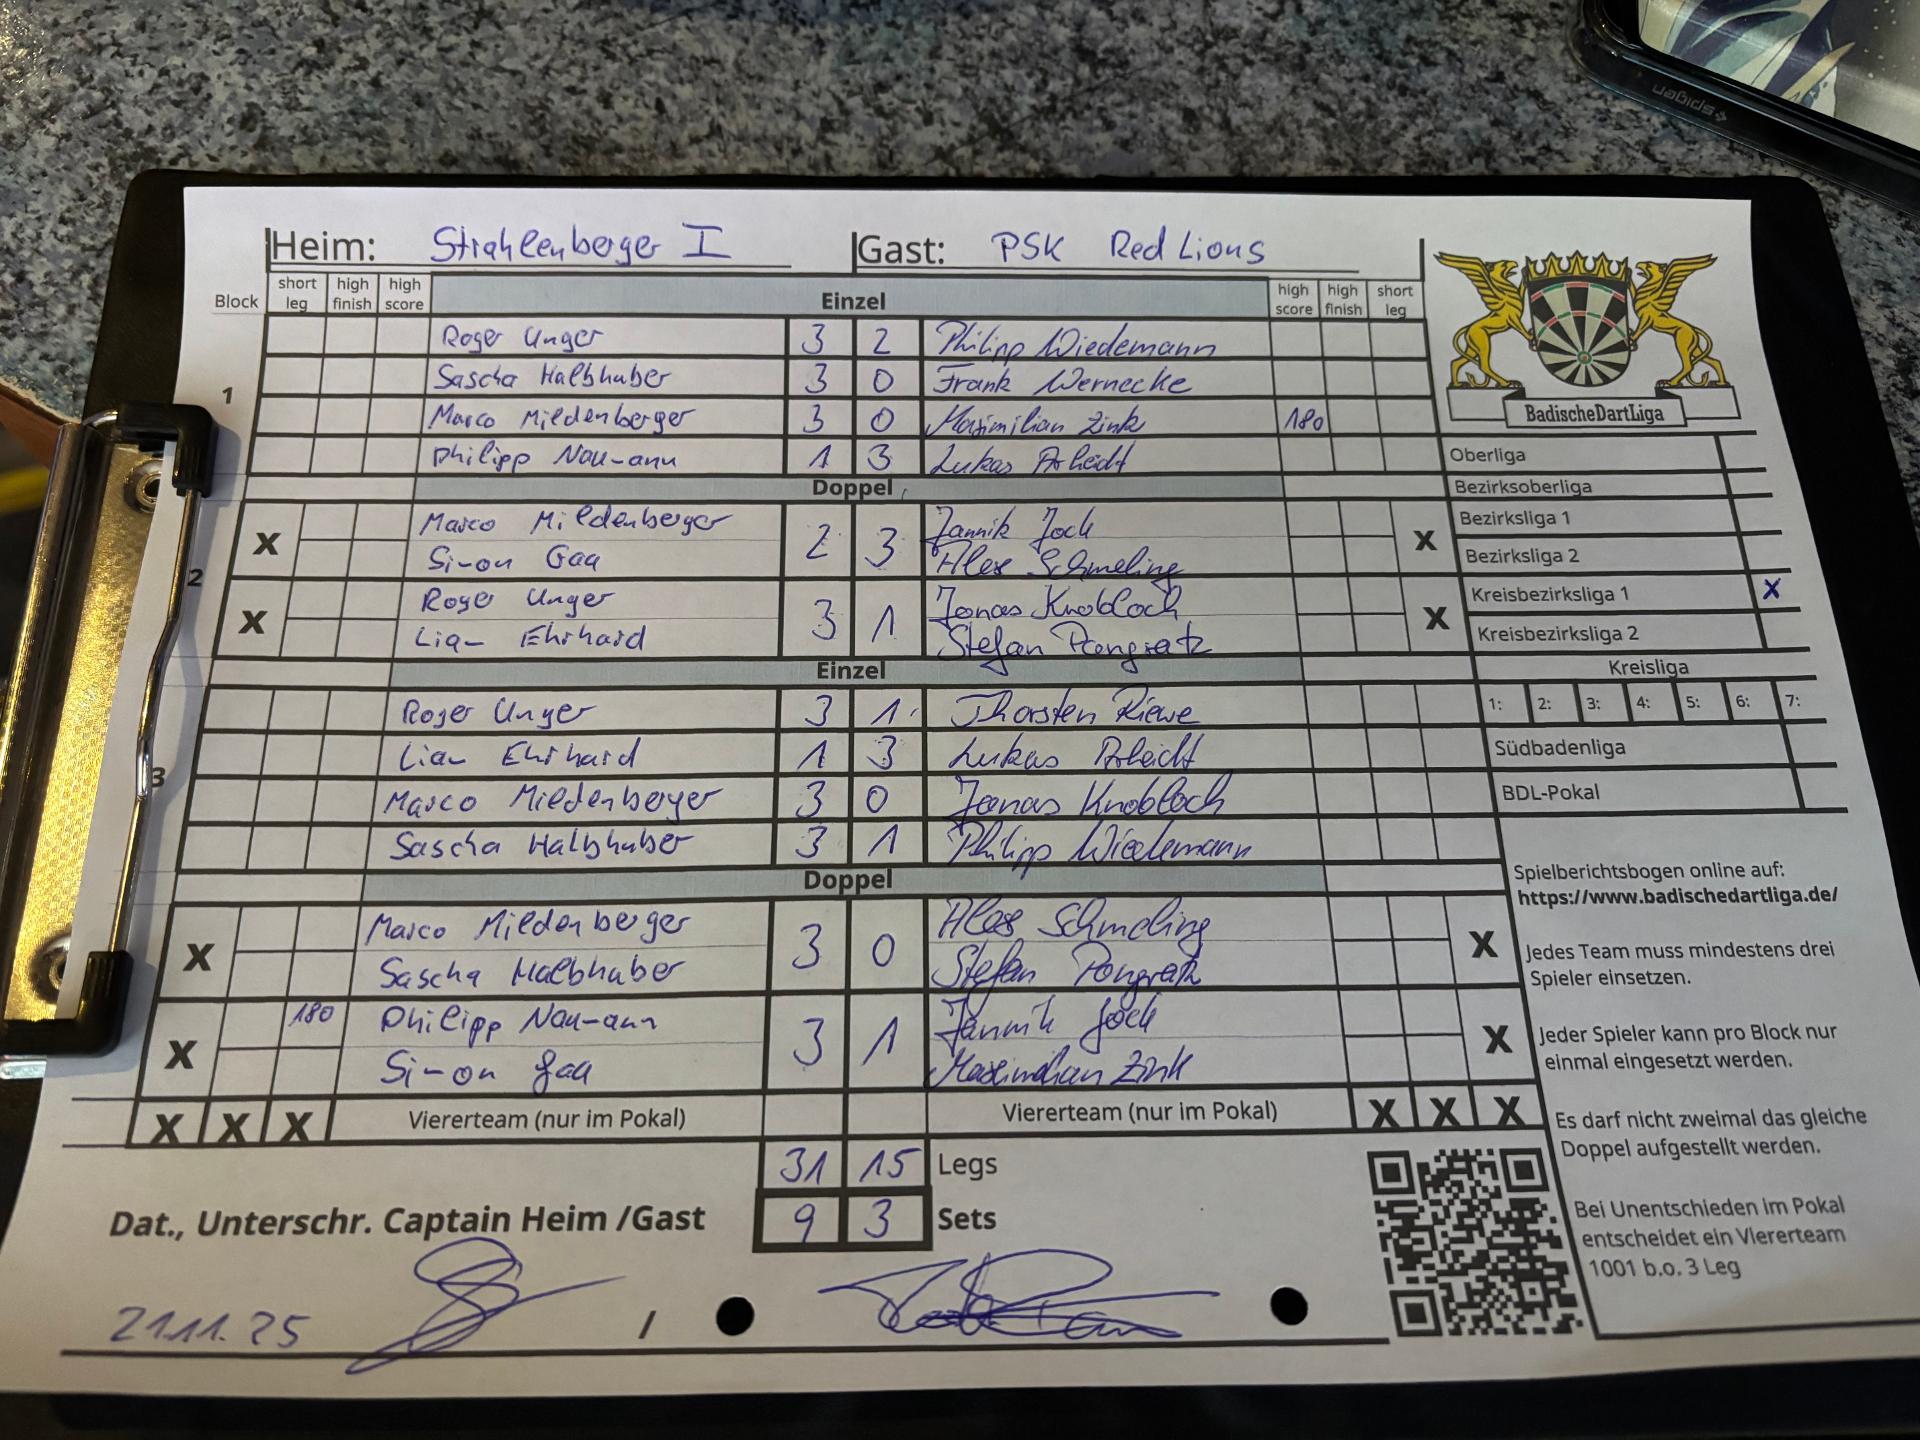 Spigen
Heim: Strahlenberger I Gast: PSK Red Lions
Block short leg high finish high score Einzel high score high finish short leg
1
Roger Unger 3 2 Philipp Wiedemann
Sascha Halbhuber 3 0 Frank Wernecke
Marco Mildenberger 3 0 Maximilian Zink 180
Philipp Naumann 1 3 Lukas Arheidt
Doppel
2
X Marco Mildenberger 2 3 Jannik Jock X
Simon Gaa Alex Schmeling
X Roger Unger 3 1 Jonas Knobloch X
Liam Ehrhard Stefan Pongratz
Einzel
3
Roger Unger 3 1 Thorsten Riewe
Liam Ehrhard 1 3 Lukas Arheidt
Marco Mildenberger 3 0 Jonas Knobloch
Sascha Halbhuber 3 1 Philipp Wiedemann
Doppel
X Marco Mildenberger 3 0 Alex Schmeling X
Sascha Halbhuber Stefan Pongratz
X 180 Philipp Naumann 3 1 Jannik Jock X
Simon Gaa Maximilian Zink
X X X Viererteam (nur im Pokal) Viererteam (nur im Pokal) X X X
31 15 Legs
Dat., Unterschr. Captain Heim /Gast 9 3 Sets
21.11.25 /
BadischeDartLiga
Oberliga
Bezirksoberliga
Bezirksliga 1
Bezirksliga 2
Kreisbezirksliga 1 X
Kreisbezirksliga 2
Kreisliga
1: 2: 3: 4: 5: 6: 7:
Südbadenliga
BDL-Pokal
Spielberichtsbogen online auf:
https://www.badischedartliga.de/
Jedes Team muss mindestens drei
Spieler einsetzen.
Jeder Spieler kann pro Block nur
einmal eingesetzt werden.
Es darf nicht zweimal das gleiche
Doppel aufgestellt werden.
Bei Unentschieden im Pokal
entscheidet ein Viererteam
1001 b.o. 3 Leg